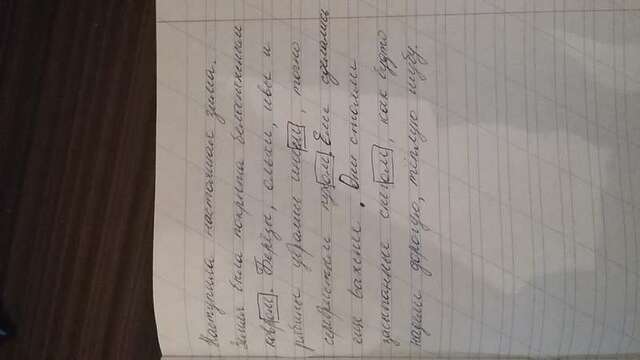 Наступила настоящая зима.
Земля была покрыта белоснежным
ковром. Берёзы, ольхи, ивы и
рябины убрались инеем, точно
серебристым пухом. Ели сделались
еще важней. Они стояли
засыпанные снегом, как будто
надели дорогую, тёплую шубу.